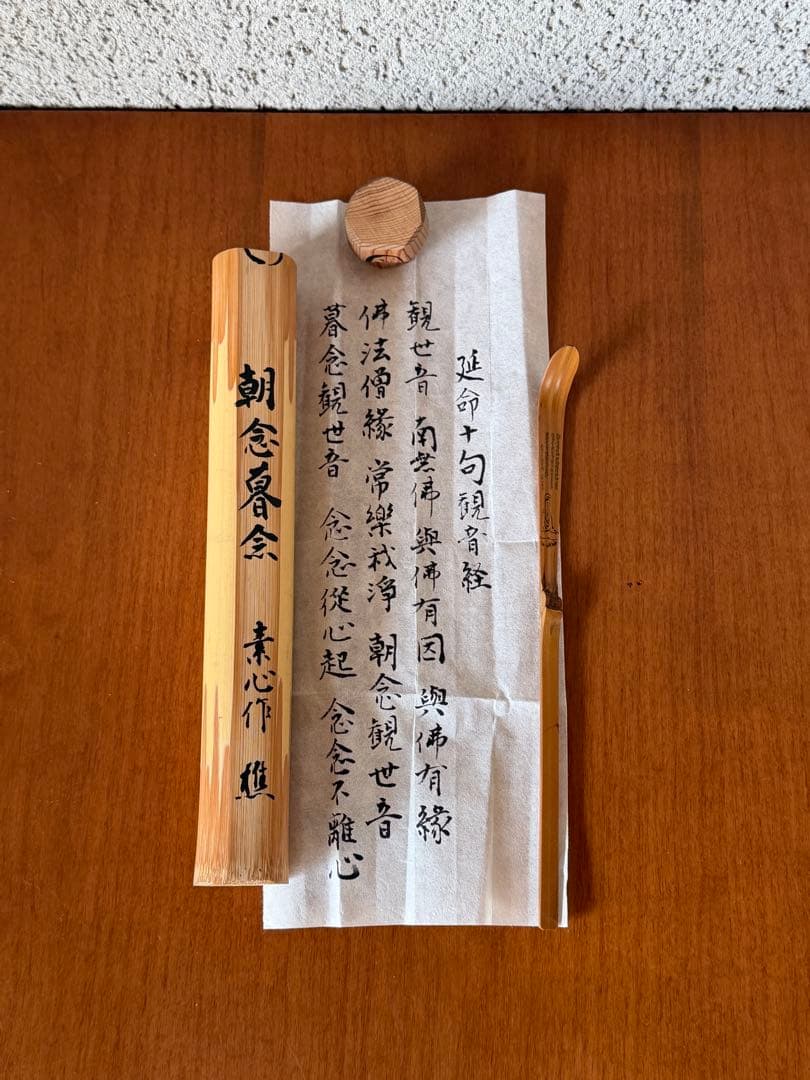 延命十句観音経
観世音 南無佛 與佛有因 與佛有緣
佛法僧緣 常樂我淨 朝念観世音
暮念観世音 念念從心起 念念不離心
朝念暮念 素心作 樵